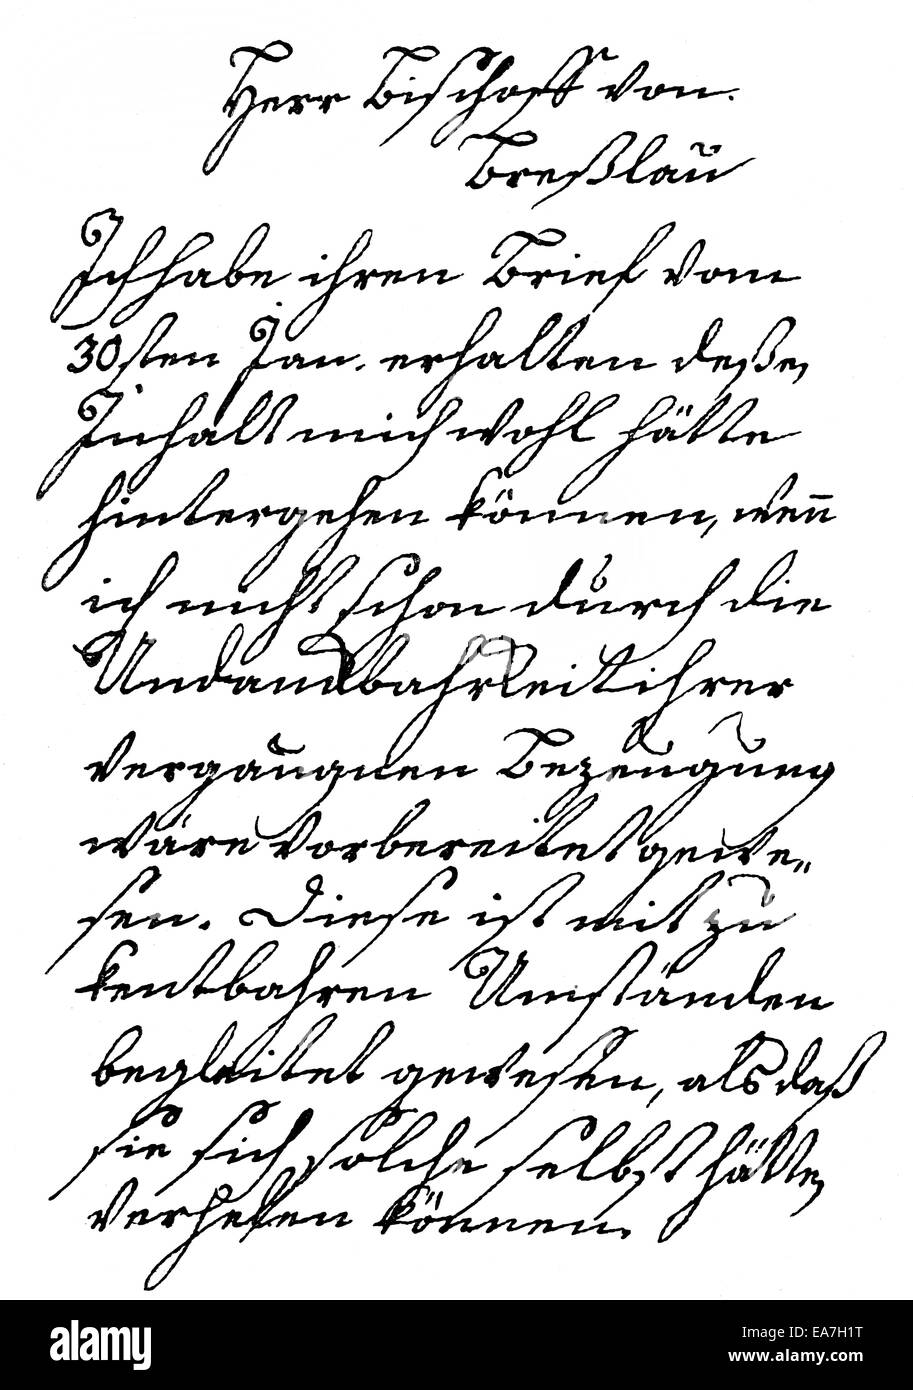 Herr Bischoff von.
Breßlau
Ich habe ihren Brief vom
30sten Jan. erhalten deßen
Inhalt mich wohl hätte
hintergehen können, wenn
ich nicht schon durch die
Undandbahrkeit ihrer
vergangnen Bezeugung
wäre vorbereitet gewe-
sen. Diese ist mit zu
kentbahren Umständen
begleitet gewesen, als daß
sie sich solche selbst hätten
verhelen können.
alamy
EA7H1T
www.alamy.com